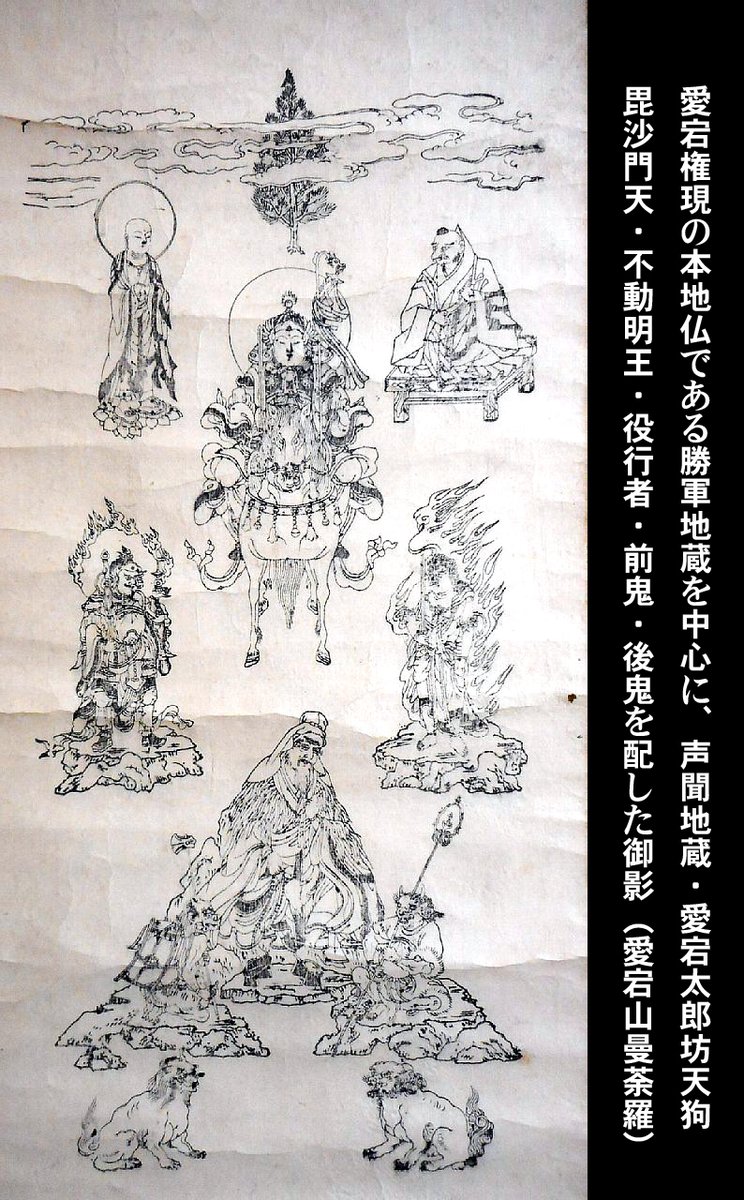 愛宕権現の本地仏である勝軍地蔵を中心に、声聞地蔵・愛宕太郎坊天狗
毘沙門天・不動明王・役行者・前鬼・後鬼を配した御影（愛宕山曼荼羅）